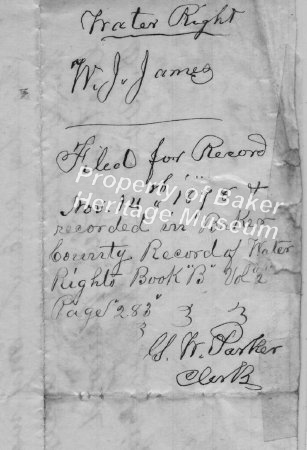 Water Right
W. J. James
Filed for Record
Nov 14
recorded in Baker
County Record of Water
Rights Book "B" Vol "2"
Page "283"
G. W. Parker
Clerk
Property of Baker
Heritage Museum